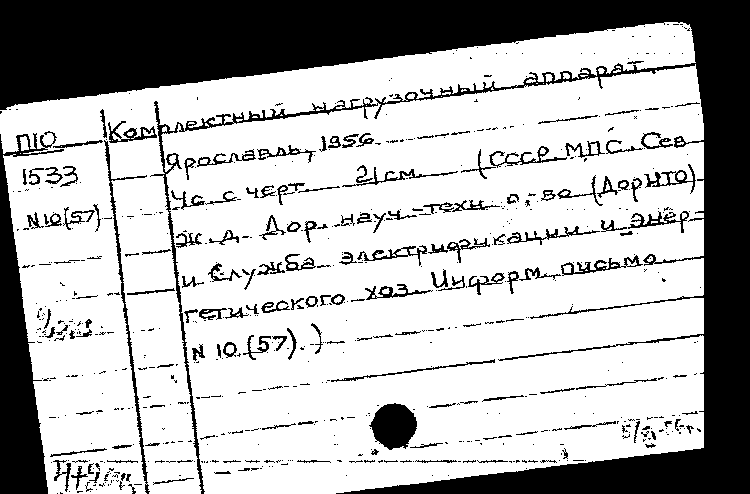 Комплектный нагрузочный аппарат.
П10
1533
N10(57)
Ярославль, 1956.
4с. с черт. 21см. (СССР. МПС. Сев
ж. д. Дор. науч.-техн. о.-во (ДорНТО)
и Служба электрификации и энер-
гетического хоз. Информ. письмо
N 10 (57). )